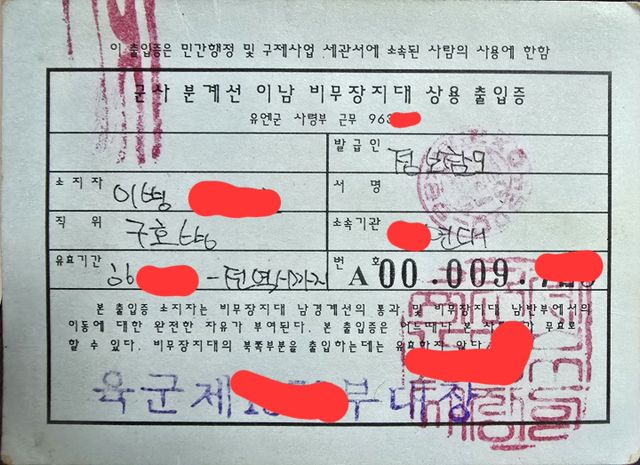 이 출입증은 민간행정 및 구제사업 세관서에 소속된 사람의 사용에 한함
군사 분계선 이남 비무장지대 상용 출입증
유엔군 사령부 근무 963
발급인
소지자 이병
서 명
직 위 구호병
소속기관
유효기간 - 전역시까지
번 호 A 00.009.
본 출입증 소지자는 비무장지대 남경계선의 통과 및 비무장지대 남반부에서의
이동에 대한 완전한 자유가 부여된다. 본 출입증은 어느때나 본 가 무효로
할 수 있다. 비무장지대의 북쪽부분을 출입하는데는 유효하지 않다
육군제 부대장